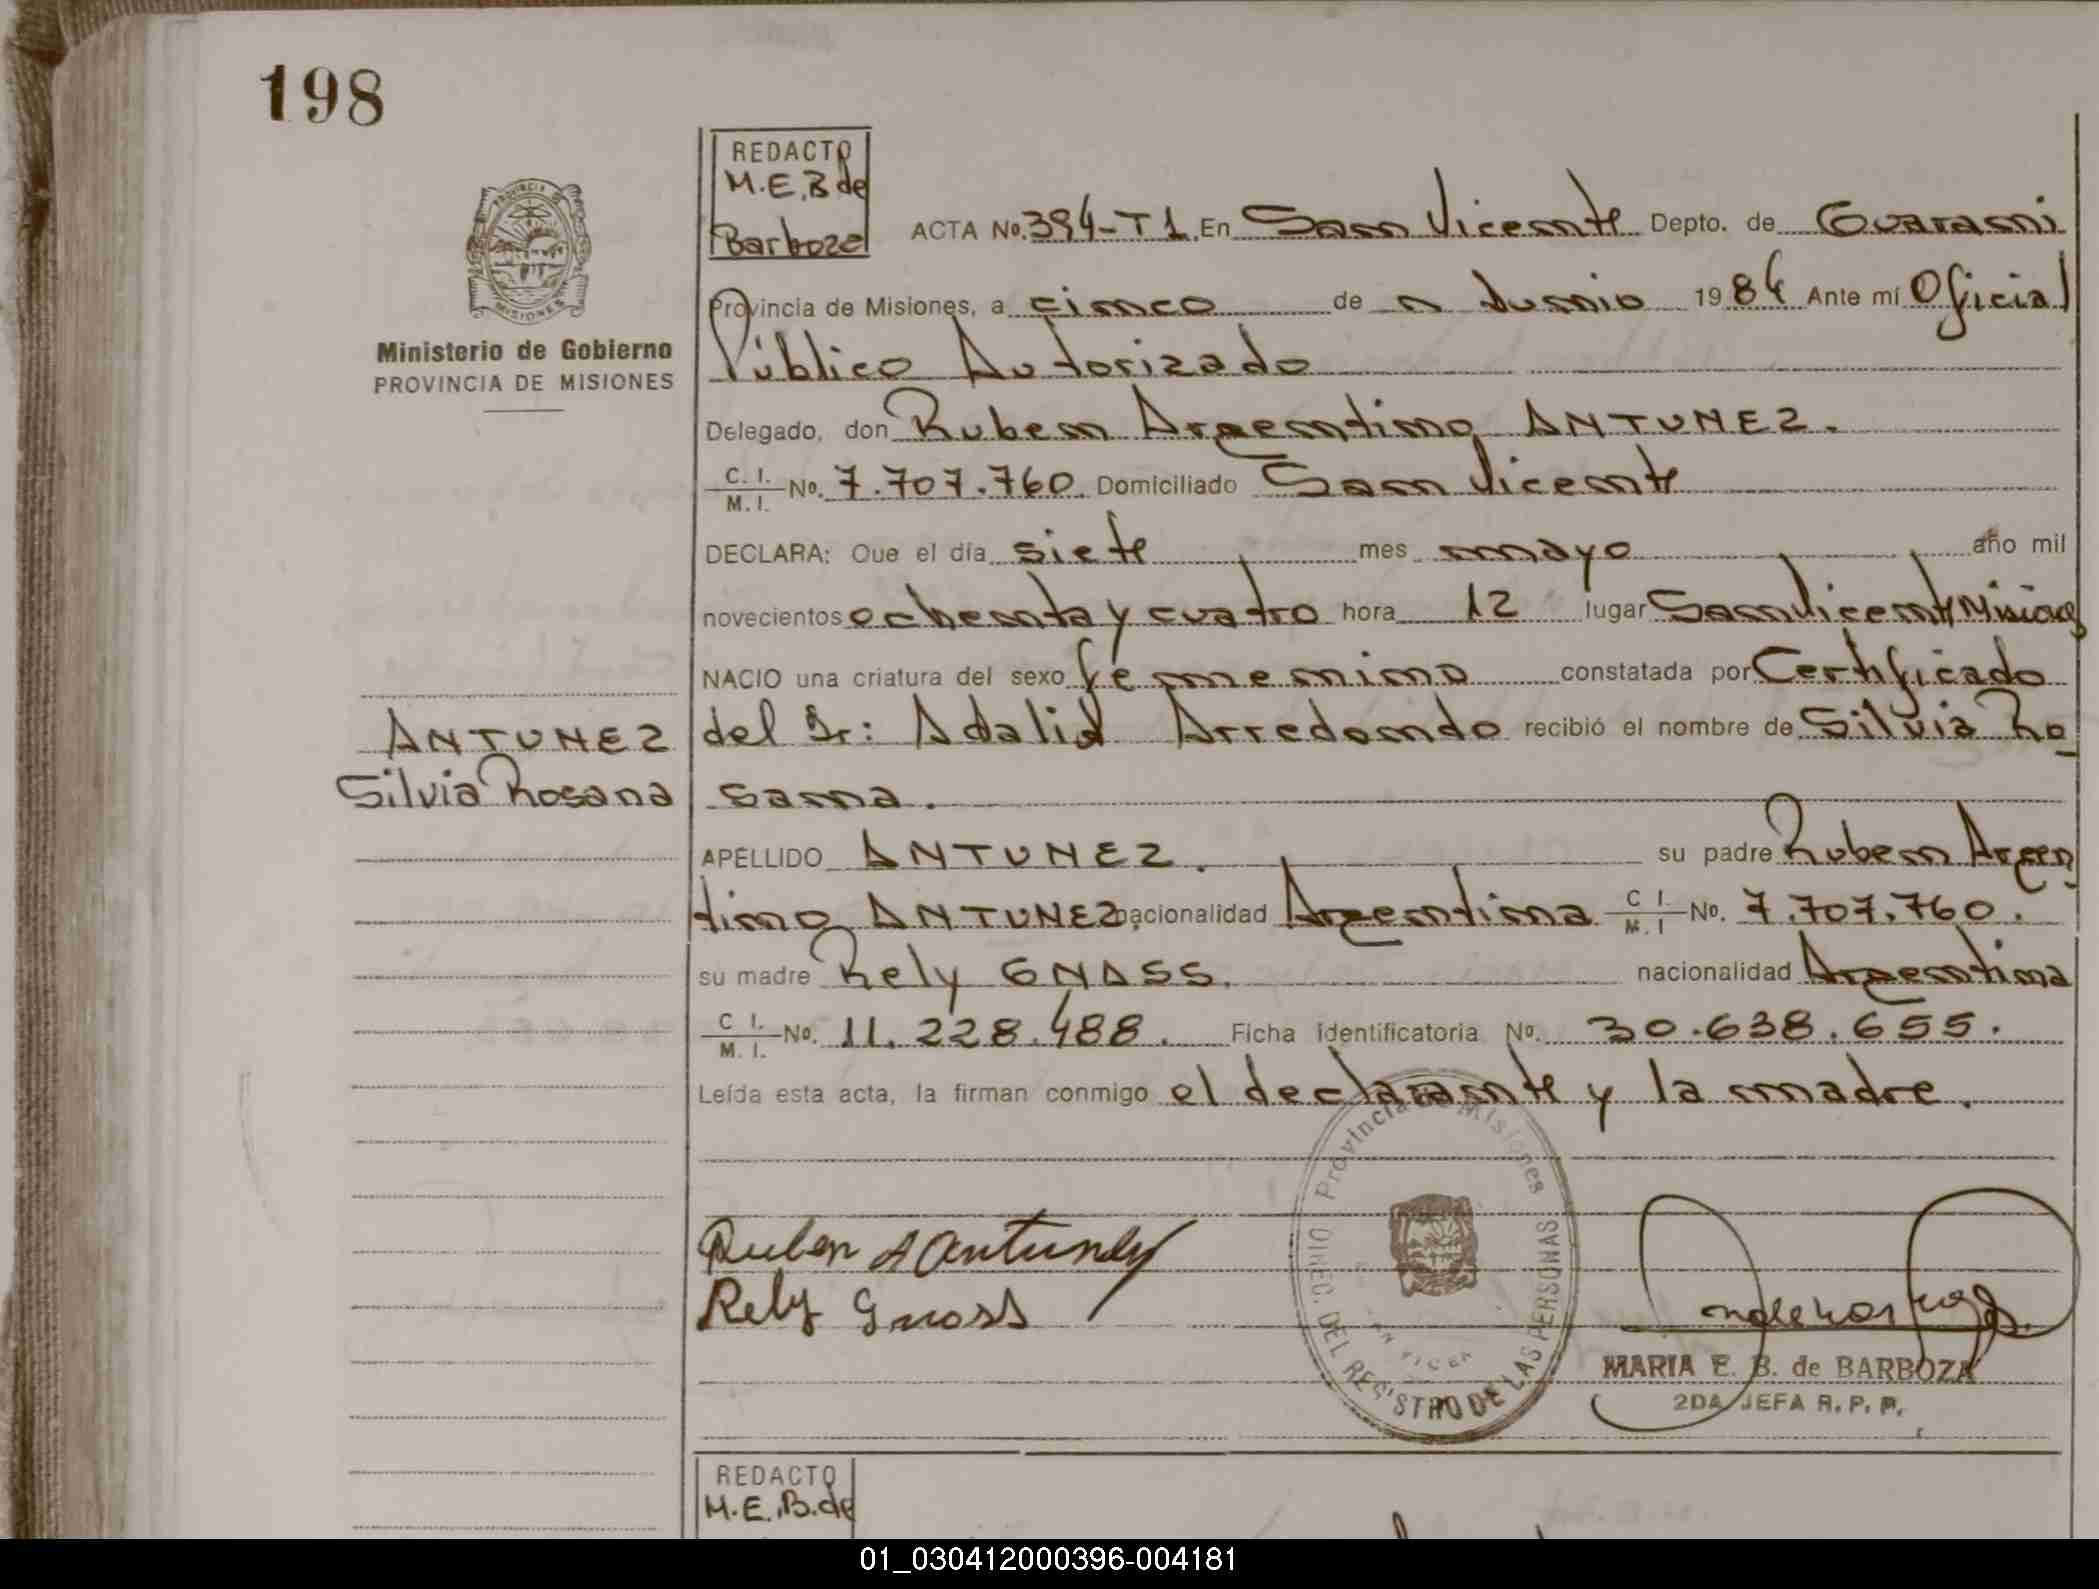 198
REDACTO
M.E.B de
Barboza
PROVINCIA DE
MISIONES
Ministerio de Gobierno
PROVINCIA DE MISIONES
ACTA No. 394-T1. En San Vicente Depto. de Guarani
Provincia de Misiones, a cinco de Junio 1984 Ante mí Oficial
Público Autorizado
Delegado, don Ruben Argentino ANTUNEZ.
C. I.
M. I. No. 7.707.760. Domiciliado San Vicente
DECLARA: Que el día siete mes mayo año mil
novecientos ochenta y cuatro hora 12 lugar San Vicente Misiones
NACIO una criatura del sexo femenino constatada por Certificado
del Dr: Adalid Arredondo recibió el nombre de Silvia Ro-
sana.
ANTUNEZ
Silvia Rosana
APELLIDO ANTUNEZ. su padre Ruben Argen-
tino ANTUNEZ, nacionalidad Argentina C I. M. I No. 7.707.760.
su madre Rely GNASS. nacionalidad Argentina
C I. M. I. No. 11.228.488. Ficha identificatoria No. 30.638.655.
Leída esta acta, la firman conmigo el declarante y la madre.
Ruben A Antunez
Rely Gnass
Provincia de Misiones
DIREC. DEL REGISTRO DE LAS PERSONAS
MARIA E. B. de BARBOZA
2DA JEFA R. P. P.
REDACTO
M.E.B.de
01_030412000396-004181